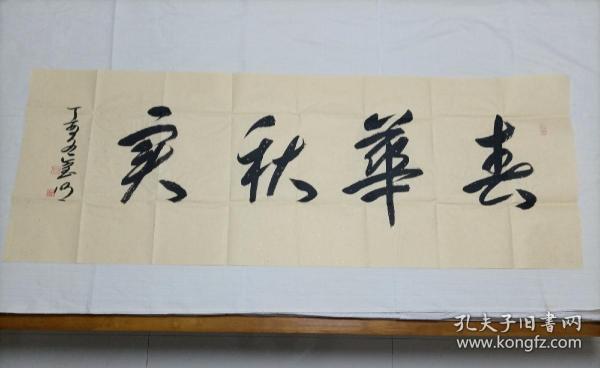 春華秋实
丁亥
孔夫子旧書网
www.kongfz.com